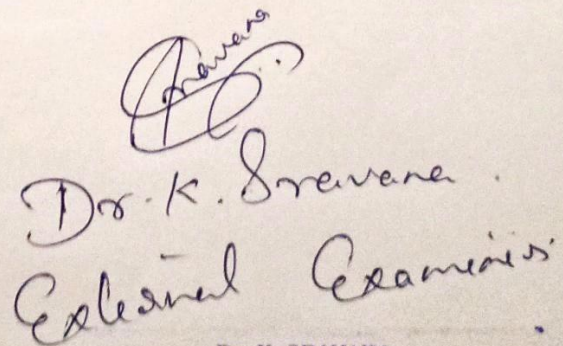 Sravana
Dr. K. Sravana.
External Examiner